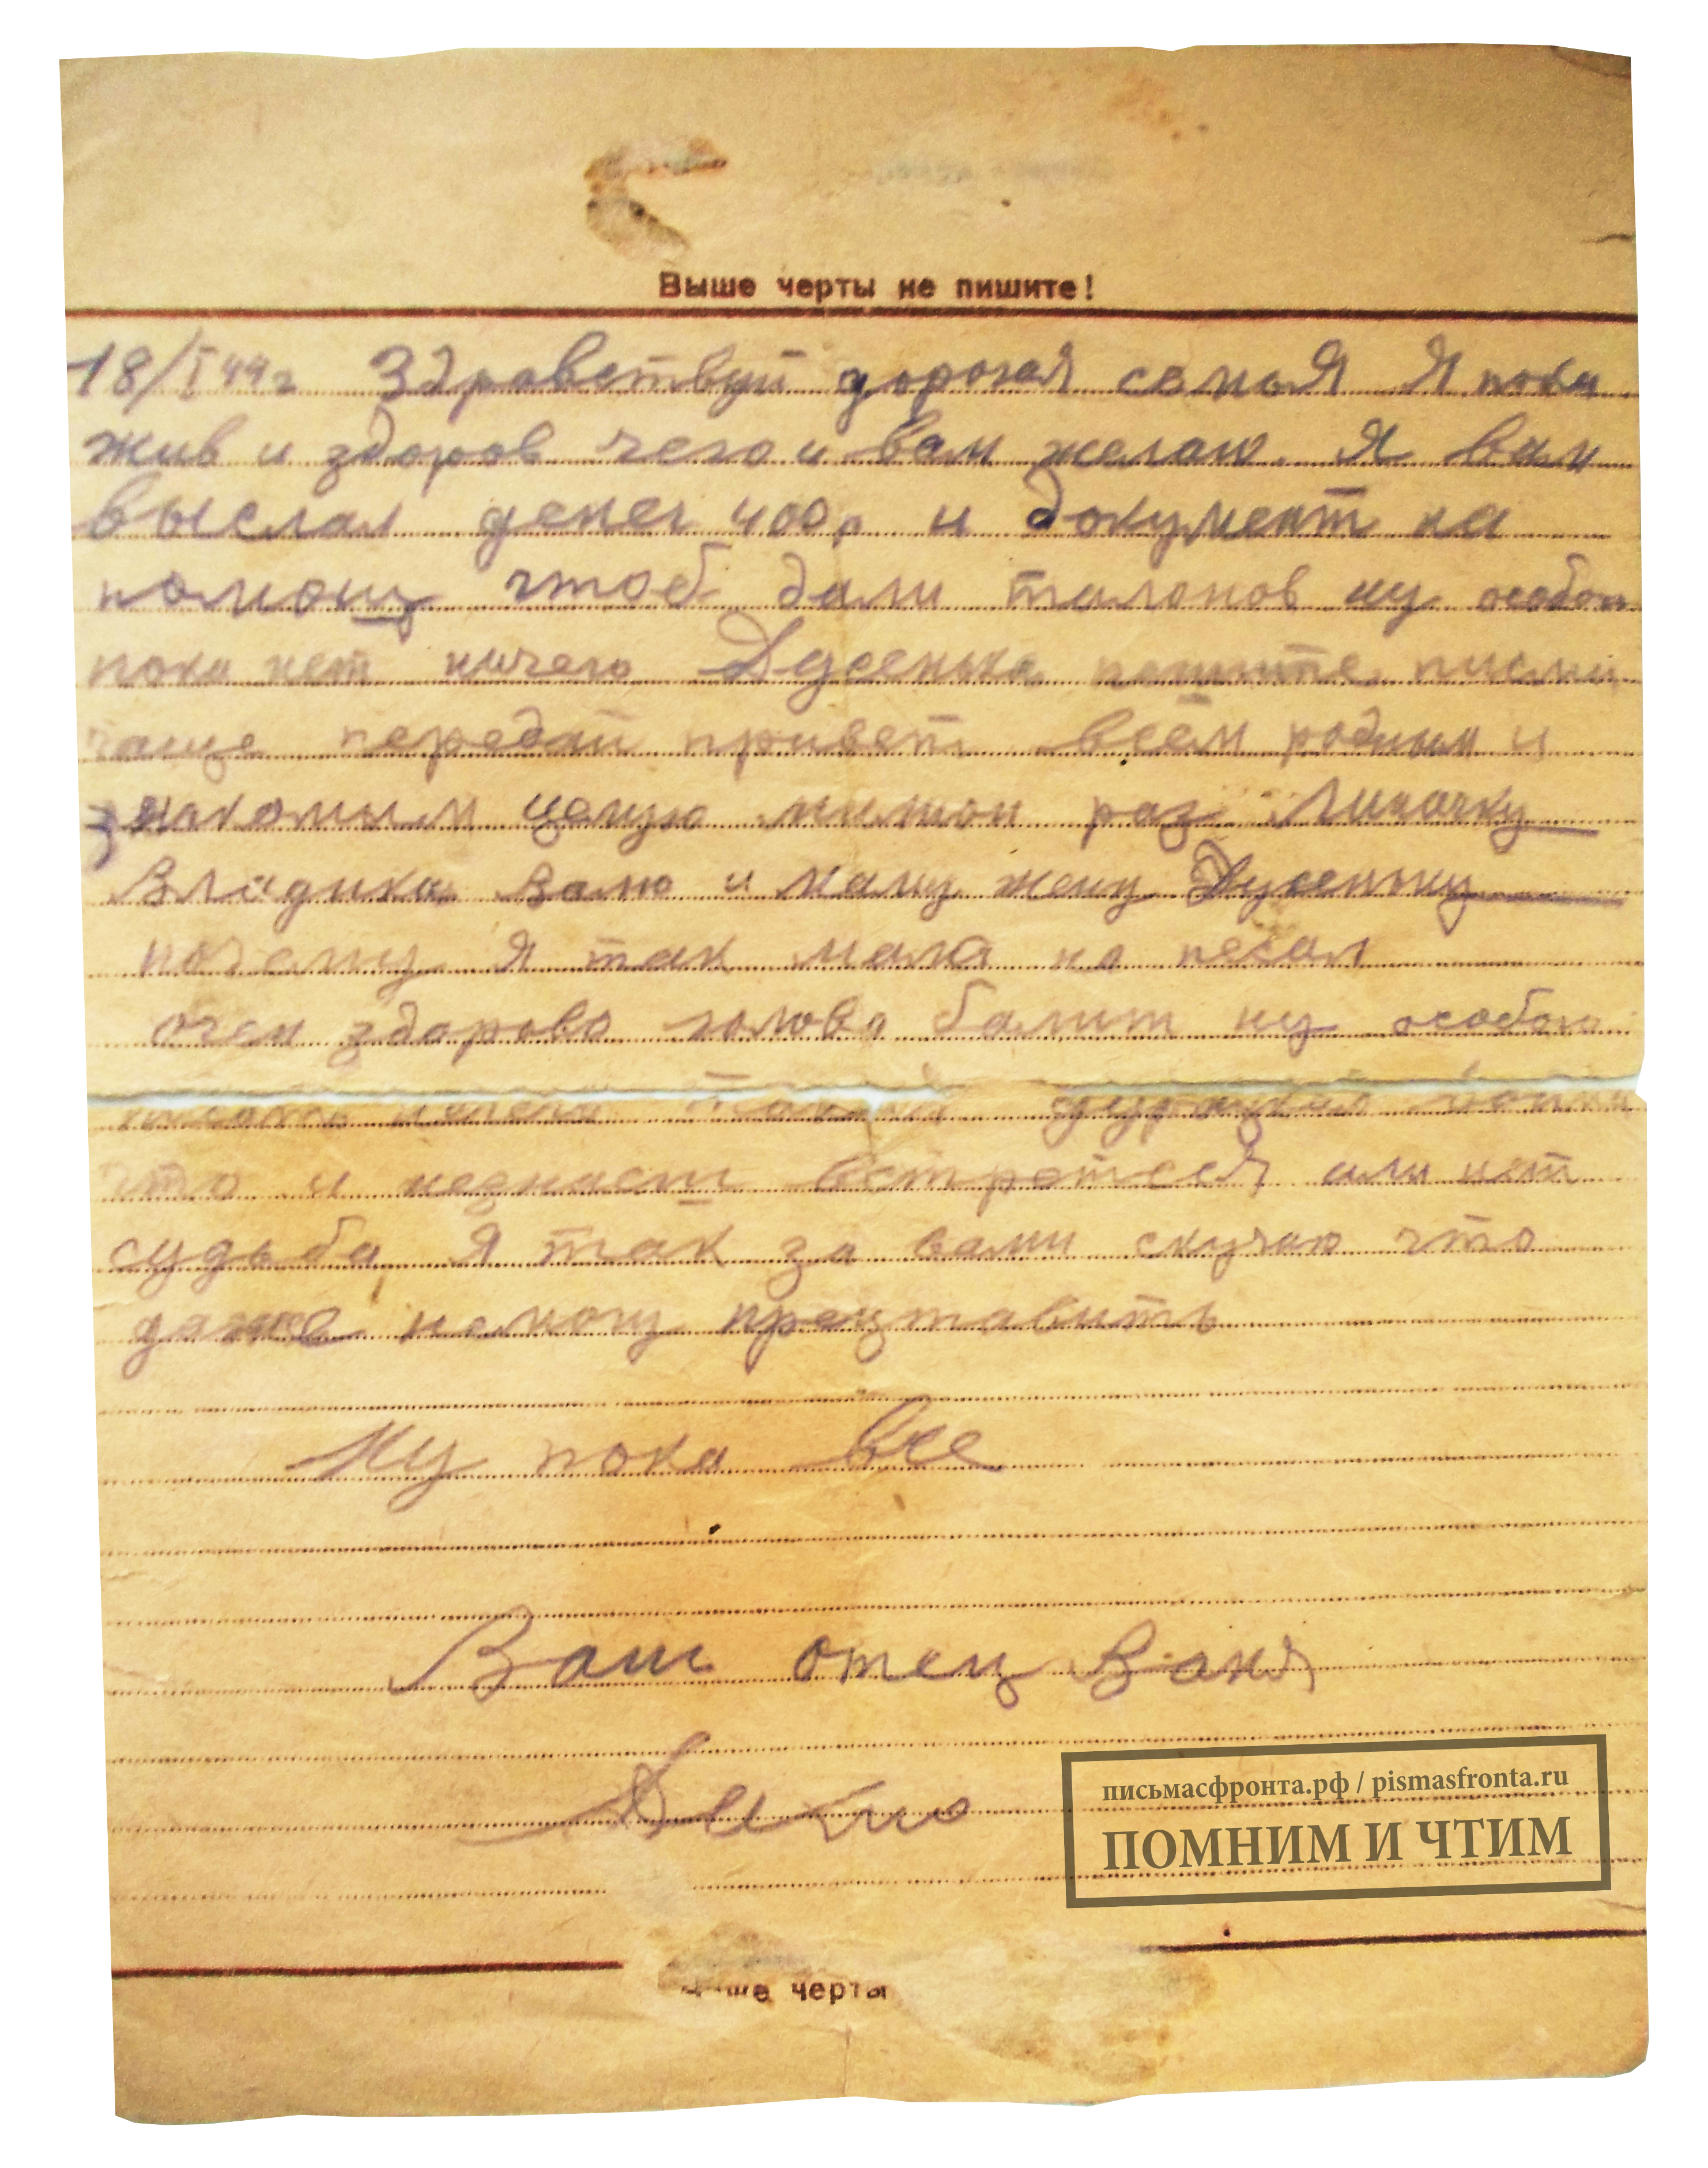 Выше черты не пишите!
18/I 44г Здравствуй дорогая семья Я пока
жив и здоров чего и вам желаю. Я вам
выслал денег 400р и документ на
помощ чтоб дали талонов ну особого
пока нет ничего Дусенька пишите письма
чаще передай привет всем родным и
знакомым целую милион раз Линочку
Владика Валю и маму жену Дусеньку
почему я так мала на песал
очен здорово голова балит ну особого
ничего
что и незнаеш встретееся или нет
судьба Я так за вами скучаю что
даже немогу прецтавить
Ну пока все
Ваш отец Ваня
письмасфронта.рф / pismasfronta.ru
ПОМНИМ И ЧТИМ
ше черты